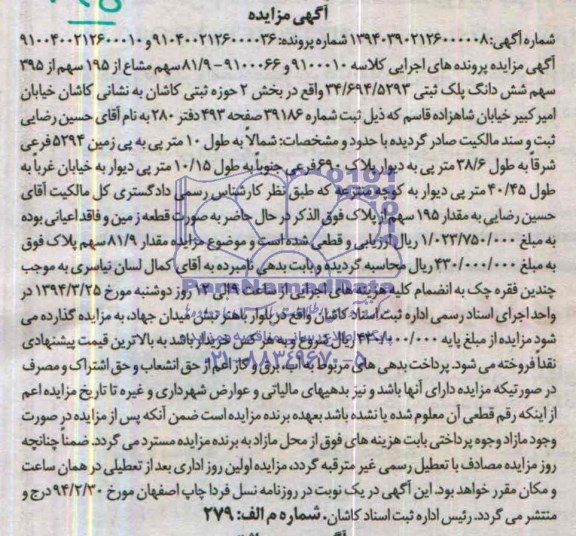 آگهی مزایده
شماره آگهی: ۱۳۹۴۰۳۹۰۲۱۲۶۰۰۰۰۰۸ شماره پرونده: ۹۱۰۴۰۰۲۱۲۶۰۰۰۰۳۶ و ۹۱۰۰۴۰۰۲۱۲۶۰۰۰۱۰
آگهی مزایده پرونده های اجرایی کلاسه ۹۱۰۰۰۱۰ و ۹۱۰۰۰۶۶ - ۸۱/۹ سهم مشاع از ۱۹۵ سهم از ۳۹۵
سهم شش دانگ پلک ثبتی ۳۴/۶۹۴/۵۲۹۳ واقع در بخش ۲ حوزه ثبتی کاشان به نشانی کاشان خیابان
امیرکبیر خیابان شاهزاده قاسم که ذیل ثبت شماره ۳۹۱۸۶ صفحه ۴۹۳ دفتر ۲۸۰ به نام آقای حسین رضایی
ثبت و سند مالکیت صادر گردیده با حدود و مشخصات: شمالاً به طول ۱۰ متر پی به پی زمین ۵۲۹۴ فرعی
شرقا به طول ۳۸/۶ متر پی به دیوار پلاک ۶۹۰ فرعی جنوباً به طول ۱۰/۱۵ متر پی دیوار به خیابان غرباً به
طول ۴۰/۴۵ متر پی دیوار به کوچه متنزعه که طبق نظر کارشناس رسمی دادگستری کل مالکیت آقای
حسین رضایی به مقدار ۱۹۵ سهم از پلاک فوق الذکر در حال حاضر به صورت قطعه زمین و فاقد اعیانی بوده
به مبلغ ۱/۰۲۳/۷۵۰/۰۰۰ ریال ارزیابی و قطعی شده است و موضوع مزایده مقدار ۸۱/۹ سهم پلاک فوق
به مبلغ ۴۳۰/۰۰۰/۰۰۰ ریال محاسبه گردیده و بابت بدهی نامبرده به آقای کمال لسان نیاسری به موجب
چندین فقره چک به انضمام کلیه هزینه های اجرایی از ساعت ۹ الی ۱۲ روز دوشنبه مورخ ۱۳۹۴/۳/۲۵ در
واحد اجرای اسناد رسمی اداره ثبت اسناد کاشان واقع در بلوار باهنر نبش میدان جهاد، به مزایده گذارده می
شود مزایده از مبلغ پایه ۴۳۰/۰۰۰/۰۰۰ ریال شروع و به هر کس خریدار باشد به بالاترین قیمت پیشنهادی
نقداً فروخته می شود. پرداخت بدهی های مربوط به آب، برق و گاز اعم از حق انشعاب و حق اشتراک و مصرف
در صورتیکه مزایده دارای آنها باشد و نیز بدهیهای مالیاتی و عوارض شهرداری و غیره تا تاریخ مزایده اعم
از اینکه رقم قطعی آن معلوم شده یا نشده باشد بعهده برنده مزایده است ضمن آنکه پس از مزایده در صورت
وجود مازاد وجوه پرداختی بابت هزینه های فوق از محل مازاد به برنده مزایده مسترد می گردد. ضمناً چنانچه
روز مزایده مصادف با تعطیل رسمی غیر مترقبه گردد، مزایده اولین روز اداری بعد از تعطیلی در همان ساعت
و مکان مقرر خواهد بود. این آگهی در یک نوبت در روزنامه نسل فردا چاپ اصفهان مورخ ۹۴/۲/۳۰ درج و
منتشر می گردد. رئیس اداره ثبت اسناد کاشان. شماره م الف: ۲۷۹
۰۲۱-۸۸۳۴۹۶۷۰-۵